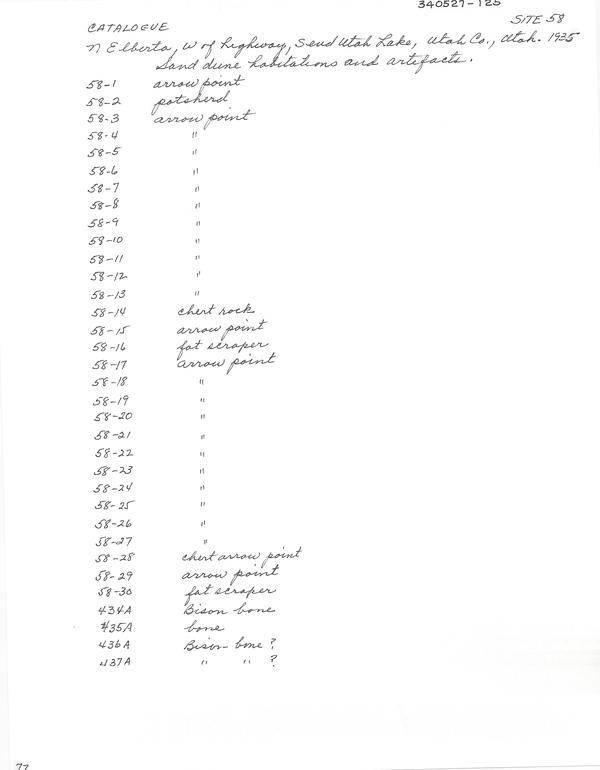 340527-125
CATALOGUE SITE 58
N Elberta, W of highway, S end Utah Lake, Utah Co., Utah. 1935
Sand dune habitations and artifacts.
58-1 arrow point
58-2 potsherd
58-3 arrow point
58-4 "
58-5 "
58-6 "
58-7 "
58-8 "
58-9 "
58-10 "
58-11 "
58-12 "
58-13 "
58-14 chert rock
58-15 arrow point
58-16 fat scraper
58-17 arrow point
58-18 "
58-19 "
58-20 "
58-21 "
58-22 "
58-23 "
58-24 "
58-25 "
58-26 "
58-27 "
58-28 chert arrow point
58-29 arrow point
58-30 fat scraper
434A Bison bone
435A bone
436A Bison bone ?
437A " " ?
77